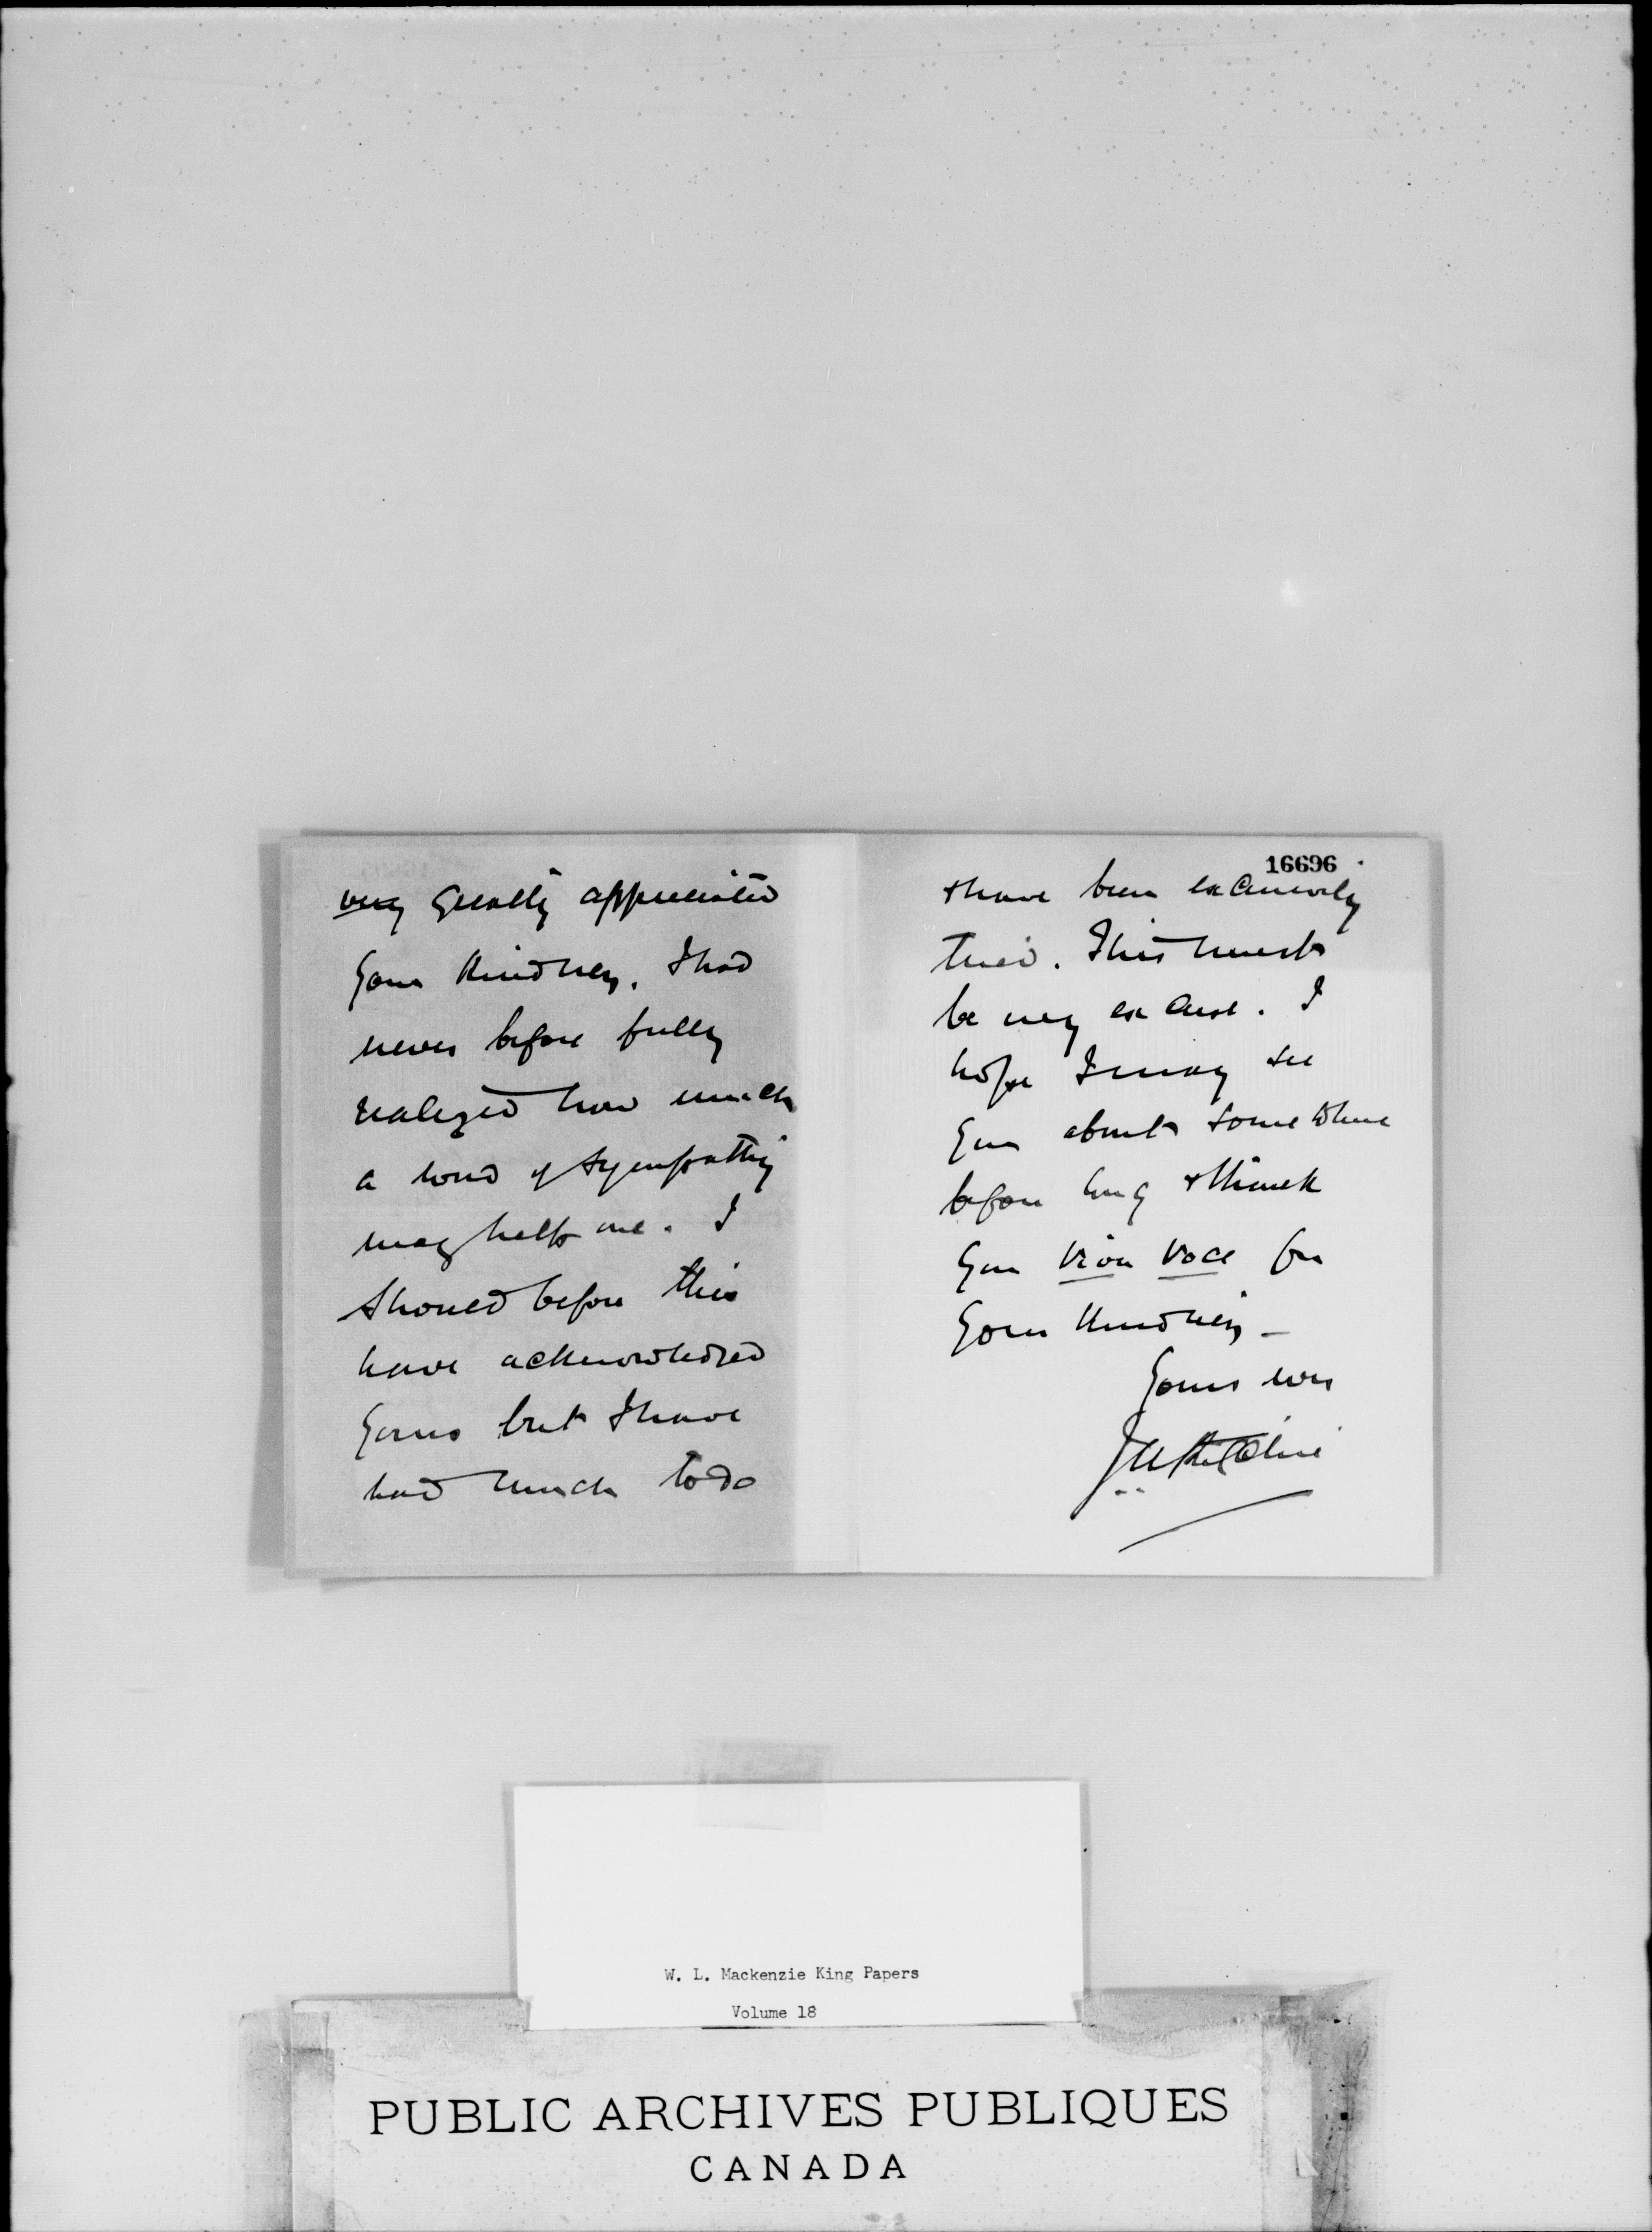 very greatly appreciated
your kindness. I had
never before fully
realized how much
a word of sympathy
may help one. I
should before this
have acknowledged
yours but I have
had much to do
16696
& have been excessively
tried. This must
be my excuse. I
hope I may see
you about somewhere
before long & thank
you viva voce for
your kindness –
Yours very
W. L. Mackenzie King Papers
Volume 18
PUBLIC ARCHIVES PUBLIQUES
CANADA